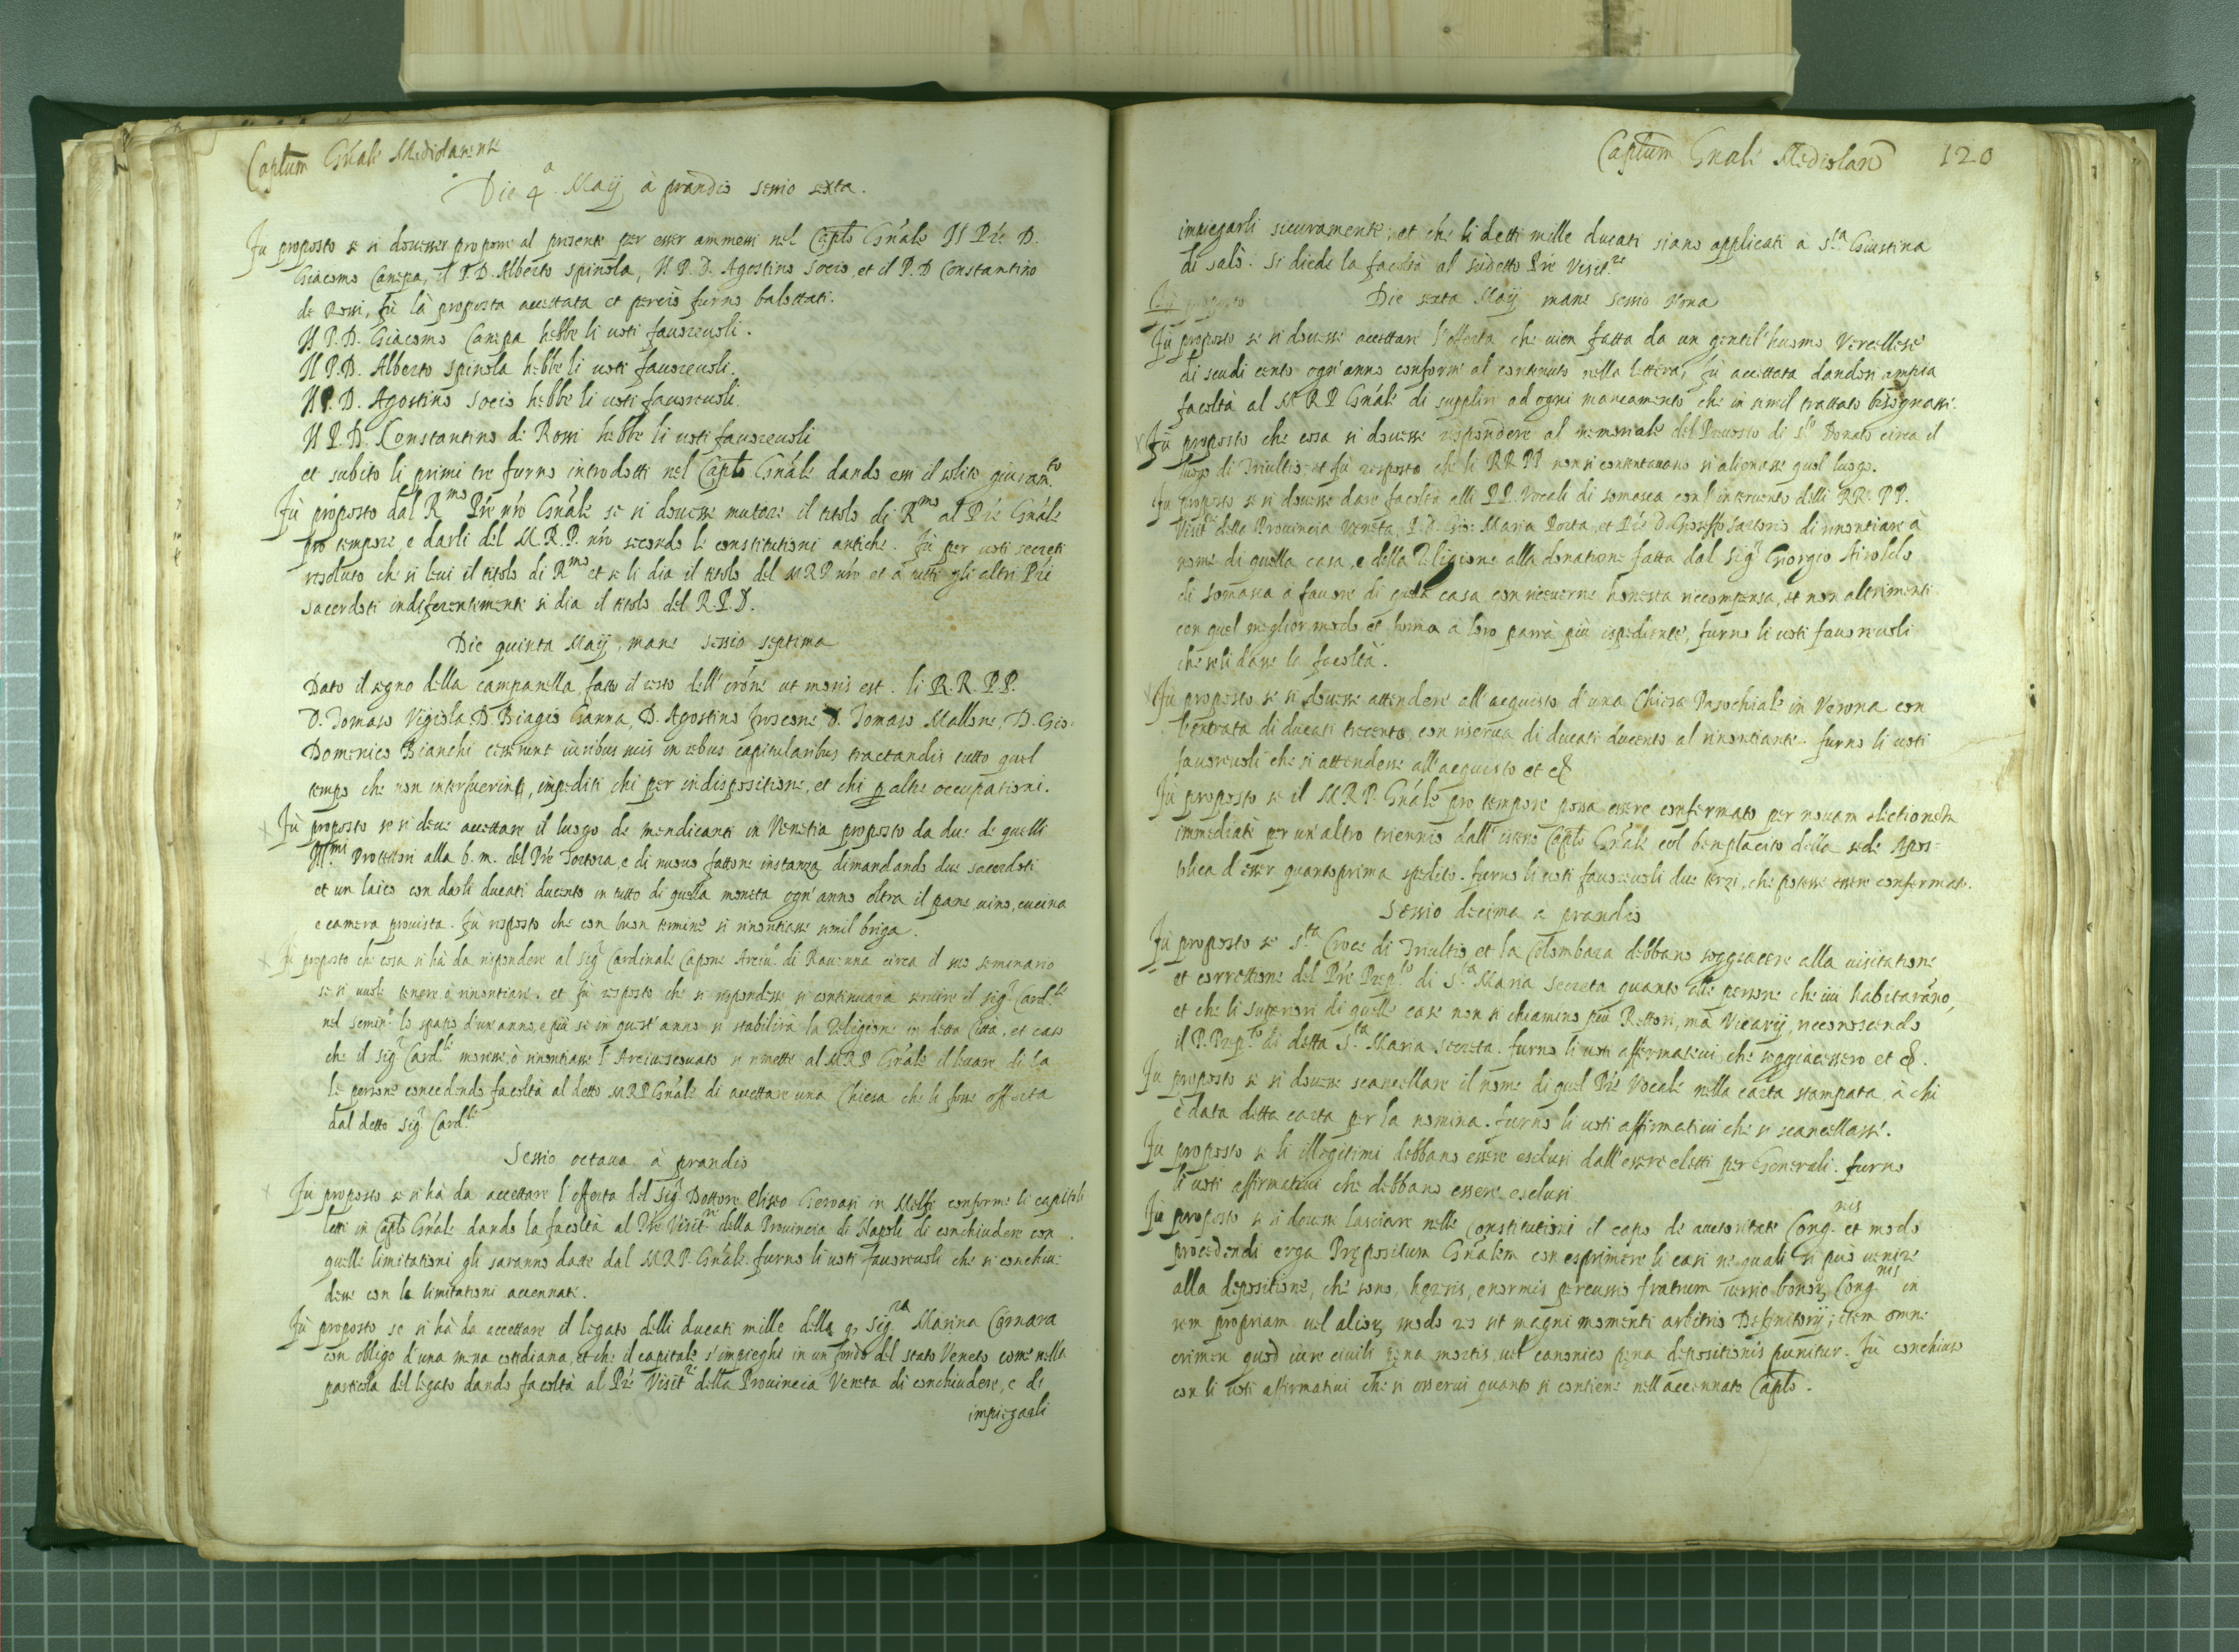 Captum Gnale Mediolanense
Die 4.a Maij à prandio sessio sexta.
Fu proposto se si dovesser proporre al presente per esser ammessi nel Caplo Gnale Il Pre D.
Giacomo Canepa, il P. D. Alberto Spinola, Il P. D. Agostino Socio, et il P. D Constantino
de Rossi, fù là proposta accettata et perciò furno balottati.
Il P. D. Giacomo Canepa hebbe li voti favorevoli.
Il P. D. Alberto Spinola hebbe li voti favorevoli.
Il P. D. Agostino Socio hebbe li voti favorevoli.
Il P. D. Constantino de Rossi hebbe li voti favorevoli
et subito li primi tre furno introdotti nel Caplo Gnale dando essi il solito giuramto
Fù proposto dal Rmo Pre nro Gnale se si dovesse mutare il titolo di Rmo al Pre Gnale
pro tempore, e darli del M. R. P. nro secondo le constitutioni antiche. Fù per voti secreti
resoluto che si levi il titolo di Rmo et se li dia il titolo del M R P nro et à tutti gli altri Pri
sacerdoti indiferentemente si dia il titolo del R. P. D.
Die quinta Maij, mane sessio septima
Dato il segno della campanella, fatto il resto dell' orõne ut moris est. li R. R. P. P.
D. Tomaso Vigiola, D. Biagio Ganna, D. Agostino Froscone D. Tomaso Mallone, D. Gio:
Domenico Bianchi cesserunt iuribus suis in rebus capitularibus tractandis tutto quel
tempo che non interfuerint, impediti chi per indispositione, et chi p altre occupationi.
Fù proposto se si deve accettare il luogo de mendicanti in Venetia proposto da due de quelli
Illmi Protettori alla b. m. del Pre Tortora, e di nuovo fattone instanza dimandando due sacerdoti
et un laico con darli ducati ducento in tutto di quella moneta ogn' anno oltra il pane, vino, cucina
e camera provista. Fù risposto che con buon termine si rinontiasse simil briga.
Fù proposto che cosa si hà da rispondere al sigr Cardinale Capone Arciuo di Ravenna circa il suo seminario
se si vuole tenere ò rinontiare. et fù risposto che si rispondesse si continuarà servire il sigr Cardle
nel seminro lo spatio d'un' anno, e più se in quest' anno si stabilirà la Religione in detta Città, et caso
che il sigr Cardle morisse, ò rinontiasse l' Arcivescovato si rimette al M R P Gnale il levare di là
le persone concedendo facoltà al detto M R P Gnale di accettare una Chiesa che li fosse offerta
dal detto sigr Cardle
Sessio octava à prandio
Fù proposto se si hà da accettare l'offerta del sigr Dottore Eliseo Gervasi in Melfi conforme li capitoli
letti in Caplo Gnale dando la facoltà al Pre Visitre della Provincia di Napoli di conchiudere con
quelle limitationi gli saranno date dal M R P. Gnale. furno li voti favorevoli che si conchiu-
desse con le limitationi accennate.
Fù proposto se si hà da accettare il legato delli ducati mille della q. sigra Marina Cornara
con obligo d'una messa cotidiana, et che il capitale s'impieghi in un fondo del stato Veneto come nella
particola del legato dando facoltà al Pre Visitre della Provincia Veneta di conchiudere, e di
impiegarli
Captum Gnale Mediolan 120
impiegarli sicuramente; et che li detti mille ducati siano applicati à Sta Giustina
di salò. Si diede la facoltà al sudetto Pre Visitre
Fù proposto Die sexta Maij mane sessio Nona
Fù proposto se si dovesse accettare l'offerta che vien fatta da un gentil'huomo Vercellese
di scudi cento ogn'anno conforme al contenuto nella lettera, fù accettata dandosi ampia
facoltà al M R P Gnale di supplire ad ogni mancamento che in simil trattato bisognasse.
Fù proposto che cosa si dovesse rispondere al memoriale del Prevosto di Sto Donato circa il
luogo di Triultio et fù risposto che li RR PP non si contentavano si alienasse quel luogo.
Fù proposto se si dovesse dare facoltà alli P P. Vocali di somasca con l'intervento delli RR. PP.
Visitri della Provincia Veneta, P. D. Gio: Maria Porta, et Pre D. Gioseffo Sartorio, di rinontiare à
nome di quella casa, e della Religione alla donatione fatta dal Sigr Giorgio Airoldo
di somasca à favore di quella casa con riceverne honesta ricompensa, et non altrimenti
con quel meglior modo et forma à loro parrà più ispediente, furno li voti favorevoli
che se li dasse la facoltà.
Fù proposto se si dovesse attendere all'acquisto d'una Chiesa Parochiale in Verona con
l'entrata di ducati trecento, con riserva di ducati ducento al rinontiante. furno li voti
favorevoli che si attendesse all'acquisto et &
Fù proposto se il M R P. Gnale pro tempore possa essere confermato per novam electionem
immediate per un'altro triennio dall' istesso Caplo Gnale, col beneplacito della sede Apos-
tolica d'esser quanto prima spedito. furno li voti favorevoli due terzi, che potesse essere confermato.
Sessio decima a prandio
Fù proposto se Sta Croce di Triultio, et la Colombara debbano soggiacere alla visitatione
et correttione del Pre Prepto di Sta Maria Secreta quanto alle persone che ivi habitaranno,
et che li superiori di quelle case non si chiamino più Rettori, mà Vicarij, riconoscendo
il P. Prepto di detta Sta Maria Secreta. furno li voti affermativi che soggiacessero et &.
Fù proposto se si dovesse scancellare il nome di quel Pre Vocale nella carta stampata, à chi
è data detta carta per la nomina. furno li voti affirmativi che si scancellasse.
Fù proposto se li illegitimi debbano essere esclusi dall'essere eletti per Generali. furno
li voti affirmativi che debbano essere esclusi
Fù proposto se si dovesse lasciare nelle Constitutioni il capo de auctoritate Congnis et modo
procedendi erga Prępositum Gnalem con esprimere li casi ne quali si può venire
alla depositione, che sono, hęresis, enormis percussio fratrum bonorum Congnis in
rem propriam vel aliorum modo res sit magni momenti arbitrio Definitorij; item omne
crimen quod iure civili pęna mortis, vel canonico pęna depositionis punitur. Fù conchiuso
con li voti affirmativi che si osservi quanto si contiene nell'accennato Caplo.